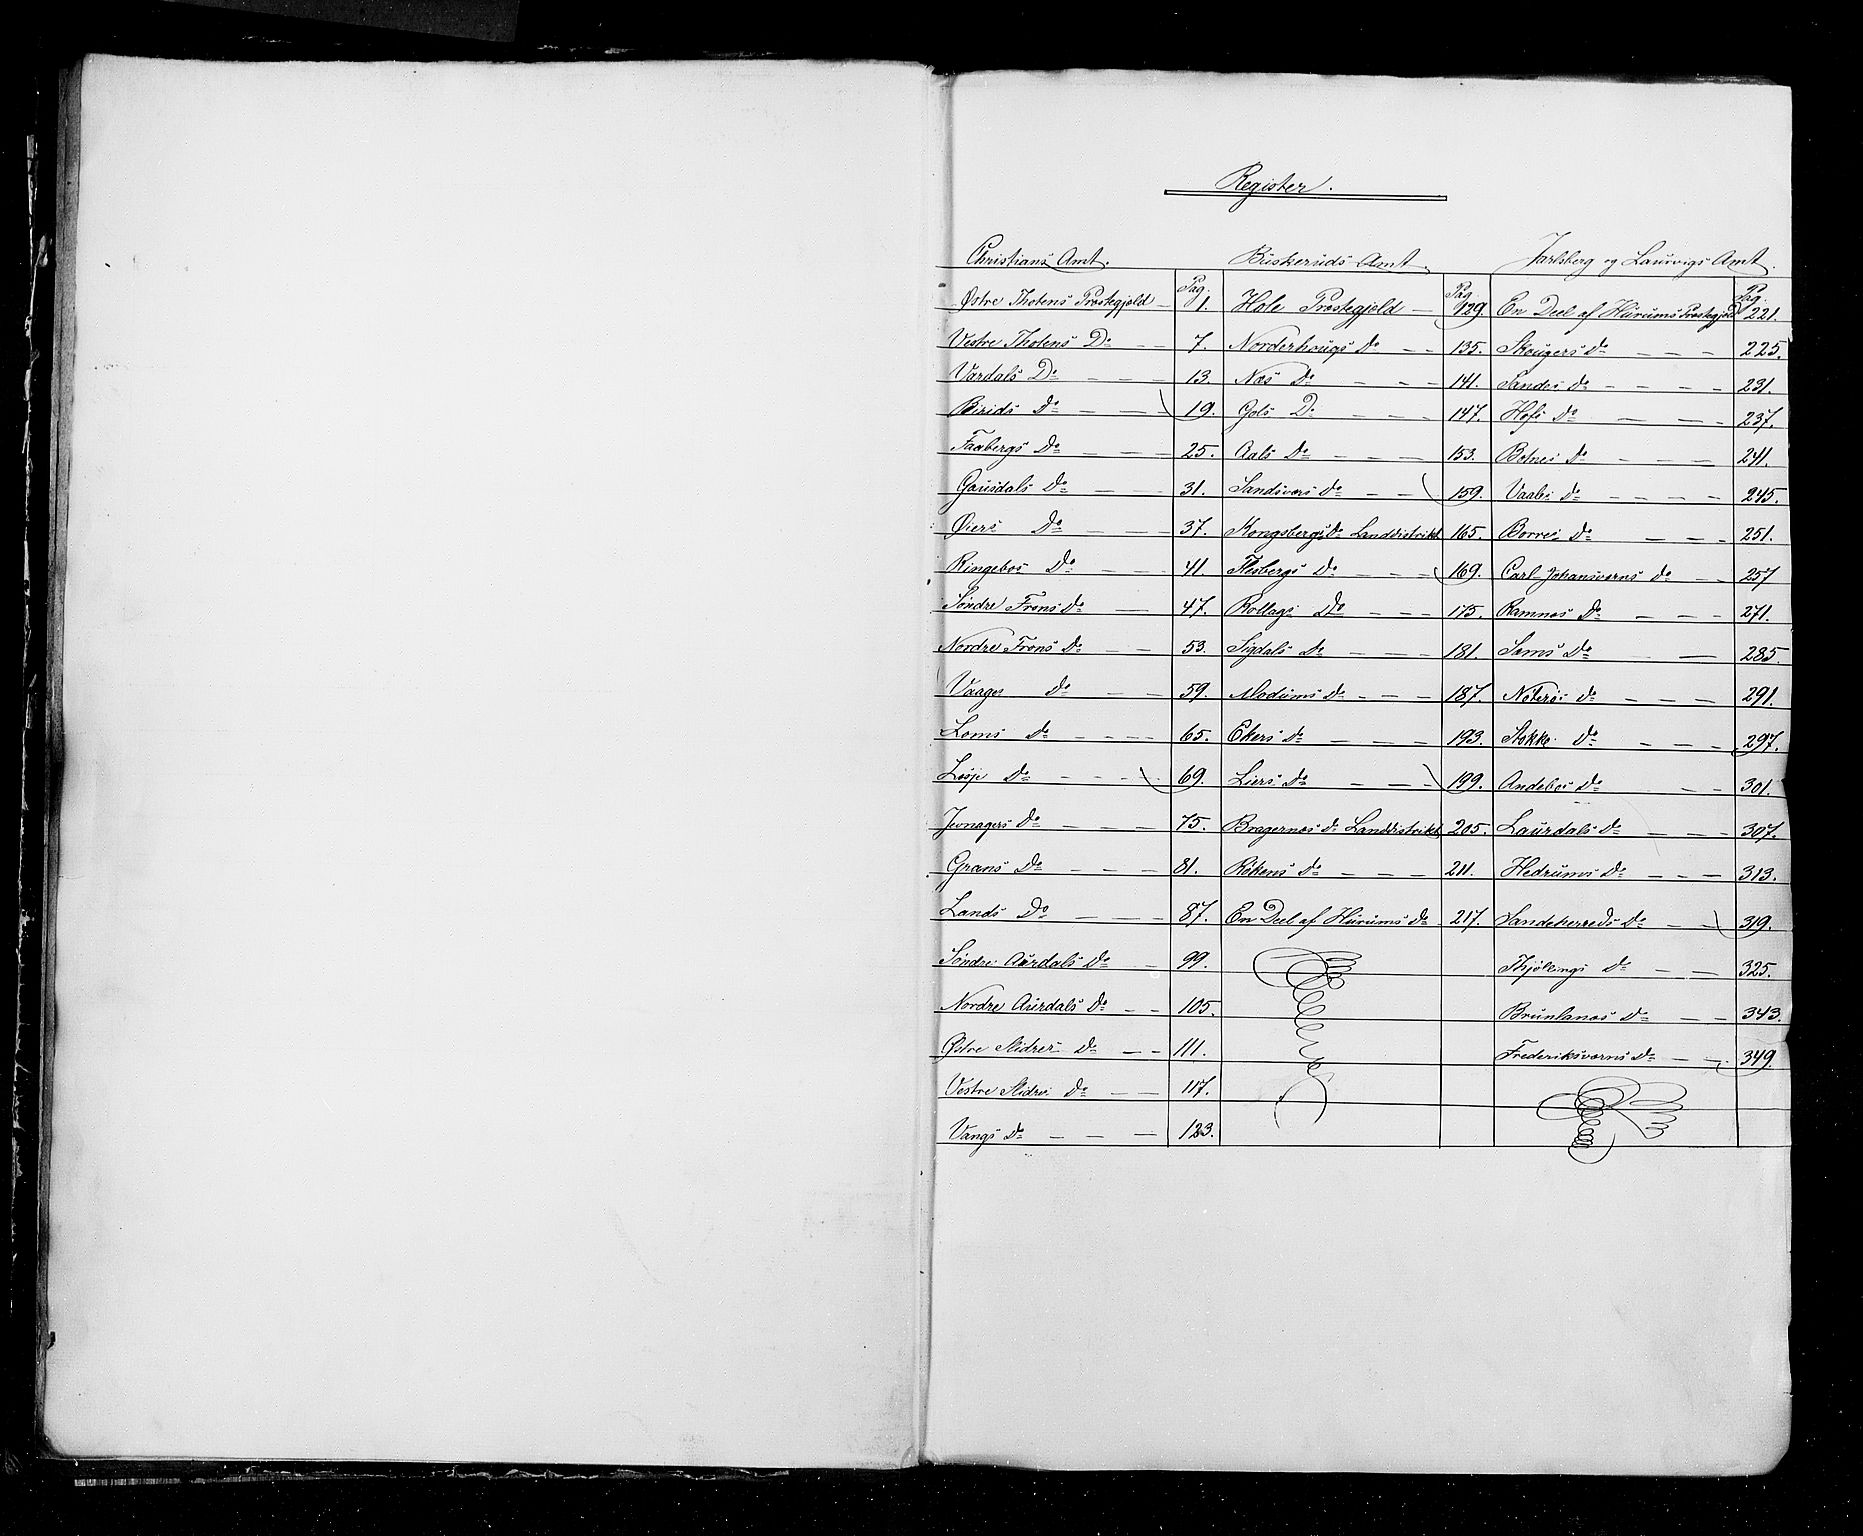 Register.
Christians Amt. Buskeruds Amt. Jarlsberg og Laurvigs Amt.
Pag. Pag. Pag.
Østre Thotens Præstegjeld — 1. Hole Præstegjeld — 129. En Deel af Hurums Præstegjeld 221.
Vestre Thotens Do — — 7. Norderhougs do — — 135. Skougers do — — — 225.
Vardals Do — — — 13. Næs do — — — 141. Sandes do — — — — 231.
Birids do — — — 19. Gols Do — — — 147. Hofs do — — — 237.
Faabergs do — — — 25. Aals do — — — 153. Botnes do — — — 241.
Gausdals do — — — 31. Sandsværs do — — 159. Vaale do — — — — 245.
Øiers do — — — 37. Kongsbergs do Landdistrikt 165. Borres do — — — 251.
Ringeboes do — — — 41. Flesbergs do — — — 169. Carl-Johansværns do — — 257
Søndre Frons do — — 47. Rollags do — — — 175. Ramnæs do — — — 271.
Nordre Frons do — — 53. Sigdals do — — — 181. Sems do — — 285.
Vaage do — — 59. Modums do — — — 187. Nøterøs do — — — 291.
Loms do — — — 65. Ekers do — — — 193. Stokke do — — — 297.
Lesje do — — — — 69. Liers do — — — 199. Andebos do — — 301.
Jevnagers do — — — 75. Bragernæs do Landdistrikt 205. Laurdals do — — — 307.
Grans do — — — 81. Røkens do — — — 211. Hedrums do — — — 313.
Lands do — — — 87. En Deel af Hurums do 217. Sandeherreds do — — 319.
Søndre Aurdals do — 99. Thjøllings do — — — 325.
Nordre Aurdals do — — 105. Brunlanæs do — — 343.
Østre Slidre do — — 111. Frederiksværns do — — 349.
Vestre Slidre do — — 117.
Vangs do — — — 123.